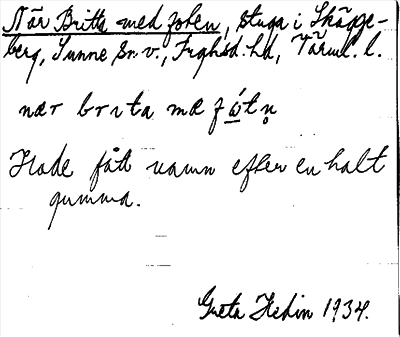 När Britta med foten, stuga i Skägge-
berg, Sunne sn. v., Fryksd. hd, Värml. l.
nær brita mæ fωtn̥
Hade fått namn efter en halt
gumma.
Greta Hedin 1934.